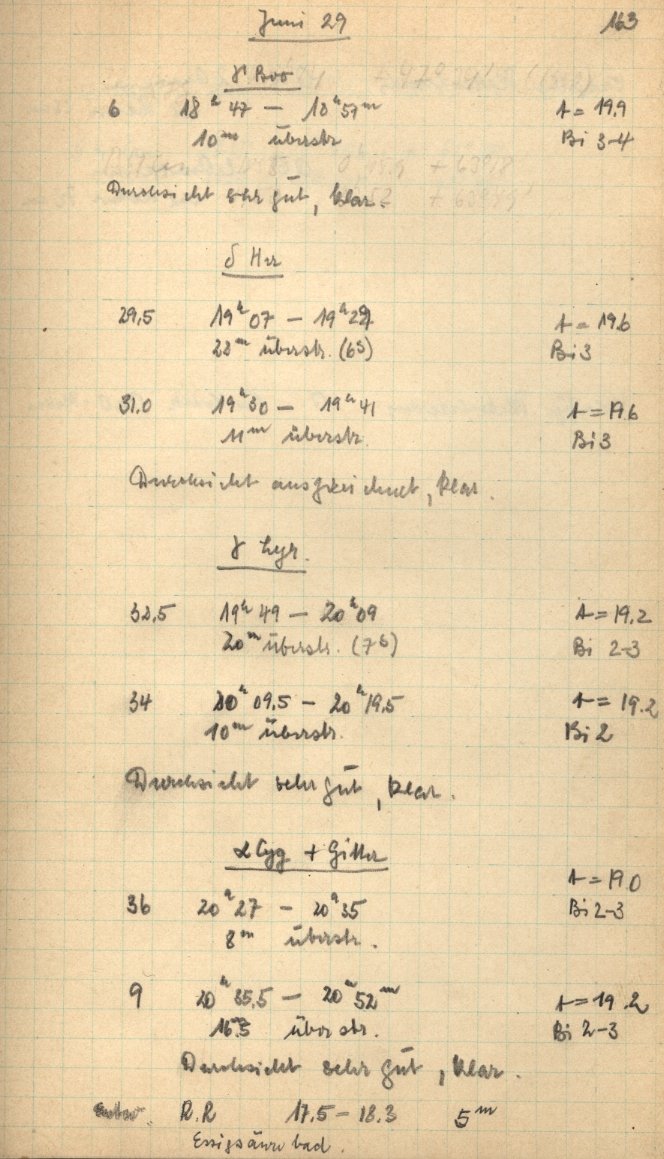 Juni 29 163
γ Boo
6 18ʰ 47 — 18ʰ 57ᵐ t = 19.9
10ᵐ überstr. Bi 3-4
Durchsicht sehr gut, klar.
δ Her
29,5 19ʰ 07 — 19ʰ 29 t = 19.6
22ᵐ überstr. (6s) Bi 3
31.0 19ʰ 30 — 19ʰ 41 t = 19.6
11ᵐ überstr. Bi 3
Durchsicht ausgezeichnet, klar.
γ Lyr.
32,5 19ʰ 49 — 20ʰ 09 t = 19.2
20ᵐ überstr. (7s) Bi 2-3
34 20ʰ 09.5 — 20ʰ 19.5 t = 19.2
10ᵐ überstr. Bi 2
Durchsicht sehr gut, klar.
α Cyg + Gitter
t = 19.0
36 20ʰ 27 — 20ʰ 35 Bi 2-3
8ᵐ überstr.
9 20ʰ 35.5 — 20ʰ 52ᵐ t = 19.2
16ᵐ5 überstr. Bi 2-3
Durchsicht sehr gut, klar.
Entw. R.R 17.5 — 18.3 5ᵐ
Essigsäure bad.